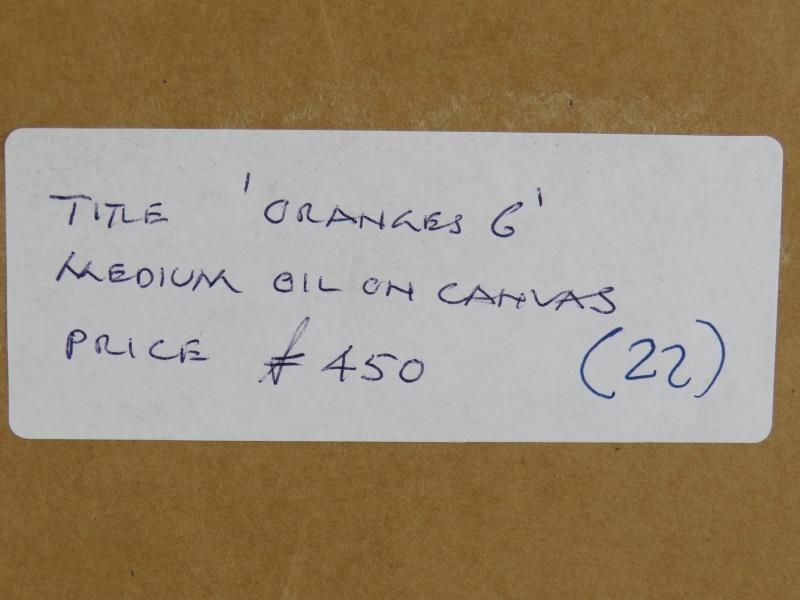 TITLE 'ORANGES 6'
MEDIUM OIL ON CANVAS
PRICE £450 (22)